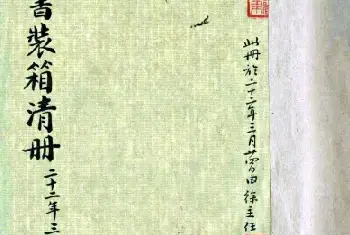 此冊於二十二年三月廿四日由徐主任
書裝箱清冊 二十二年三